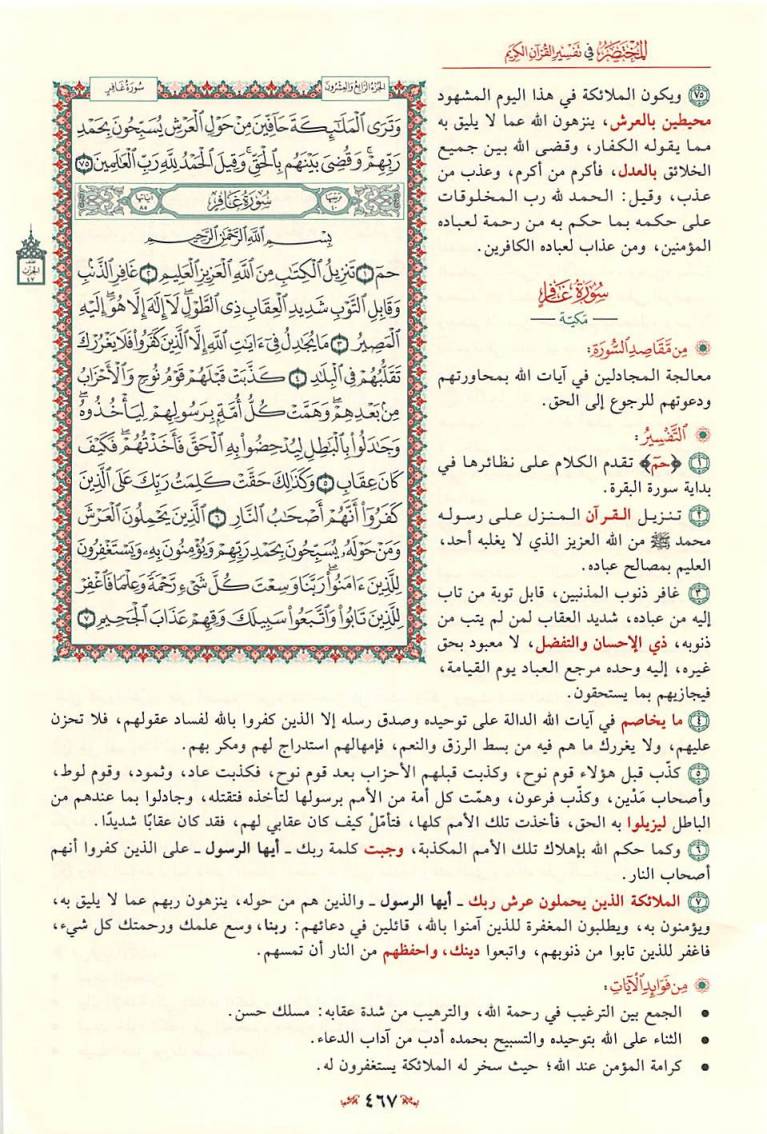 المُخْتَصَرُ في تَفْسِيرِ القُرْآنِ الكَرِيمِ
الجُزْءُ الرَّابِعُ وَالعِشْرُونَ
سُورَةُ غَافِرٍ
وَتَرَى ٱلْمَلَٰٓئِكَةَ حَآفِّينَ مِنْ حَوْلِ ٱلْعَرْشِ يُسَبِّحُونَ بِحَمْدِ
رَبِّهِمْ ۖ وَقُضِيَ بَيْنَهُم بِٱلْحَقِّ وَقِيلَ ٱلْحَمْدُ لِلَّهِ رَبِّ ٱلْعَٰلَمِينَ ٧٥
ترتيبها ٤٠
سُورَةُ غَافِرٍ
آياتها ٨٥
بِسْمِ ٱللَّهِ ٱلرَّحْمَٰنِ ٱلرَّحِيمِ
حمٓ ١ تَنزِيلُ ٱلْكِتَٰبِ مِنَ ٱللَّهِ ٱلْعَزِيزِ ٱلْعَلِيمِ ٢ غَافِرِ ٱلذَّنۢبِ
وَقَابِلِ ٱلتَّوْبِ شَدِيدِ ٱلْعِقَابِ ذِي ٱلطَّوْلِ ۖ لَآ إِلَٰهَ إِلَّا هُوَ ۖ إِلَيْهِ
ٱلْمَصِيرُ ٣ مَا يُجَٰدِلُ فِيٓ ءَايَٰتِ ٱللَّهِ إِلَّا ٱلَّذِينَ كَفَرُوا۟ فَلَا يَغْرُرْكَ
تَقَلُّبُهُمْ فِي ٱلْبِلَٰدِ ٤ كَذَّبَتْ قَبْلَهُمْ قَوْمُ نُوحٍ وَٱلْأَحْزَابُ
مِنۢ بَعْدِهِمْ ۖ وَهَمَّتْ كُلُّ أُمَّةٍۭ بِرَسُولِهِمْ لِيَأْخُذُوهُ ۖ
وَجَٰدَلُوا۟ بِٱلْبَٰطِلِ لِيُدْحِضُوا۟ بِهِ ٱلْحَقَّ فَأَخَذْتُهُمْ ۖ فَكَيْفَ
كَانَ عِقَابِ ٥ وَكَذَٰلِكَ حَقَّتْ كَلِمَتُ رَبِّكَ عَلَى ٱلَّذِينَ
كَفَرُوٓا۟ أَنَّهُمْ أَصْحَٰبُ ٱلنَّارِ ٦ ٱلَّذِينَ يَحْمِلُونَ ٱلْعَرْشَ
وَمَنْ حَوْلَهُۥ يُسَبِّحُونَ بِحَمْدِ رَبِّهِمْ وَيُؤْمِنُونَ بِهِۦ وَيَسْتَغْفِرُونَ
لِلَّذِينَ ءَامَنُوا۟ ۖ رَبَّنَا وَسِعْتَ كُلَّ شَيْءٍ رَّحْمَةً وَعِلْمًا فَٱغْفِرْ
لِلَّذِينَ تَابُوا۟ وَٱتَّبَعُوا۟ سَبِيلَكَ وَقِهِمْ عَذَابَ ٱلْجَحِيمِ ٧
٧٥ ويكون الملائكة في هذا اليوم المشهود
محيطين بالعرش، ينزهون الله عما لا يليق به
مما يقوله الكفار، وقضى الله بين جميع
الخلائق بالعدل، فأكرم من أكرم، وعذب من
عذب، وقيل: الحمد لله رب المخلوقات
على حكمه بما حكم به من رحمة لعباده
المؤمنين، ومن عذاب لعباده الكافرين.
سُورَةُ غَافِرٍ
مكيّة
مِن مَّقَاصِدِ السُّورَةِ:
معالجة المجادلين في آيات الله بمحاورتهم
ودعوتهم للرجوع إلى الحق.
التَّفْسِيرُ:
١ ﴿حمٓ﴾ تقدم الكلام على نظائرها في
بداية سورة البقرة.
٢ تنزيل القرآن المنزل على رسوله
محمد ﷺ من الله العزيز الذي لا يغلبه أحد،
العليم بمصالح عباده.
٣ غافر ذنوب المذنبين، قابل توبة من تاب
إليه من عباده، شديد العقاب لمن لم يتب من
ذنوبه، ذي الإحسان والتفضل، لا معبود بحق
غيره، إليه وحده مرجع العباد يوم القيامة،
فيجازيهم بما يستحقون.
٤ ما يخاصم في آيات الله الدالة على توحيده وصدق رسله إلا الذين كفروا بالله لفساد عقولهم، فلا تحزن
عليهم، ولا يغررك ما هم فيه من بسط الرزق والنعم، فإمهالهم استدراج لهم ومكر بهم.
٥ كذّب قبل هؤلاء قوم نوح، وكذبت قبلهم الأحزاب بعد قوم نوح، فكذبت عاد، وثمود، وقوم لوط،
وأصحاب مَدْين، وكذّب فرعون، وهمّت كل أمة من الأمم برسولها لتأخذه فتقتله، وجادلوا بما عندهم من
الباطل ليزيلوا به الحق، فأخذت تلك الأمم كلها، فتأمّلْ كيف كان عقابي لهم، فقد كان عقابًا شديدًا.
٦ وكما حكم الله بإهلاك تلك الأمم المكذبة، وجبت كلمة ربك ـ أيها الرسول ـ على الذين كفروا أنهم
أصحاب النار.
٧ الملائكة الذين يحملون عرش ربك ـ أيها الرسول ـ والذين هم من حوله، ينزهون ربهم عما لا يليق به،
ويؤمنون به، ويطلبون المغفرة للذين آمنوا بالله، قائلين في دعائهم: ربنا، وسع علمك ورحمتك كل شيء،
فاغفر للذين تابوا من ذنوبهم، واتبعوا دينك، واحفظهم من النار أن تمسهم.
مِن فَوَائِدِ الآيَاتِ:
• الجمع بين الترغيب في رحمة الله، والترهيب من شدة عقابه: مسلك حسن.
• الثناء على الله بتوحيده والتسبيح بحمده أدب من آداب الدعاء.
• كرامة المؤمن عند الله؛ حيث سخر له الملائكة يستغفرون له.
٤٦٧